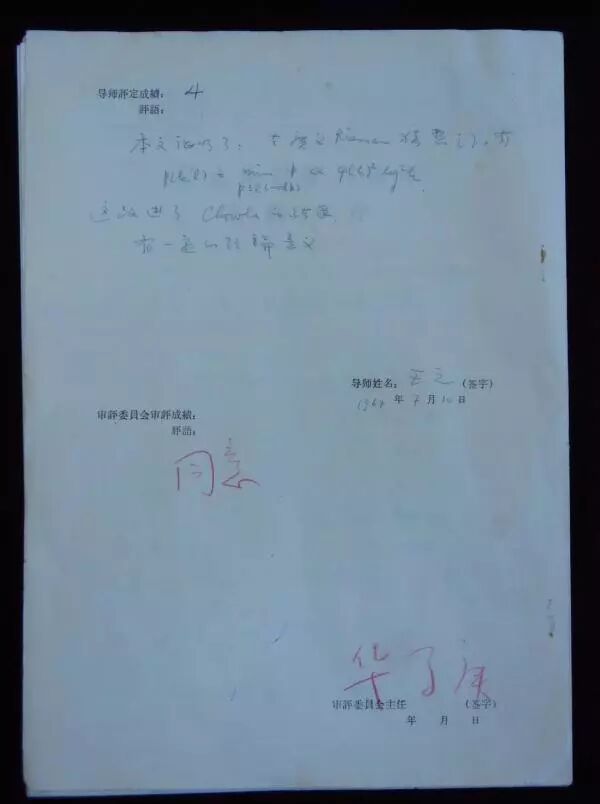 导师評定成績： 4
評語：
本文证明了：在广义Riemann猜想之下，有
min p ≪ φ(k)² lg²k
这改进了 Chowla 的结果，
有一定的理论意义
导师姓名： 王元 （签字）
1964 年 7 月 10 日
审評委員会审評成績：
評語：
同意
华罗庚
审評委員会主任 （签字）
年 月 日